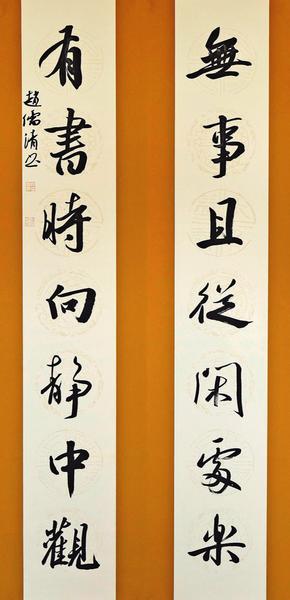 無事且從閑處樂
有書時向靜中觀
趙儒清書